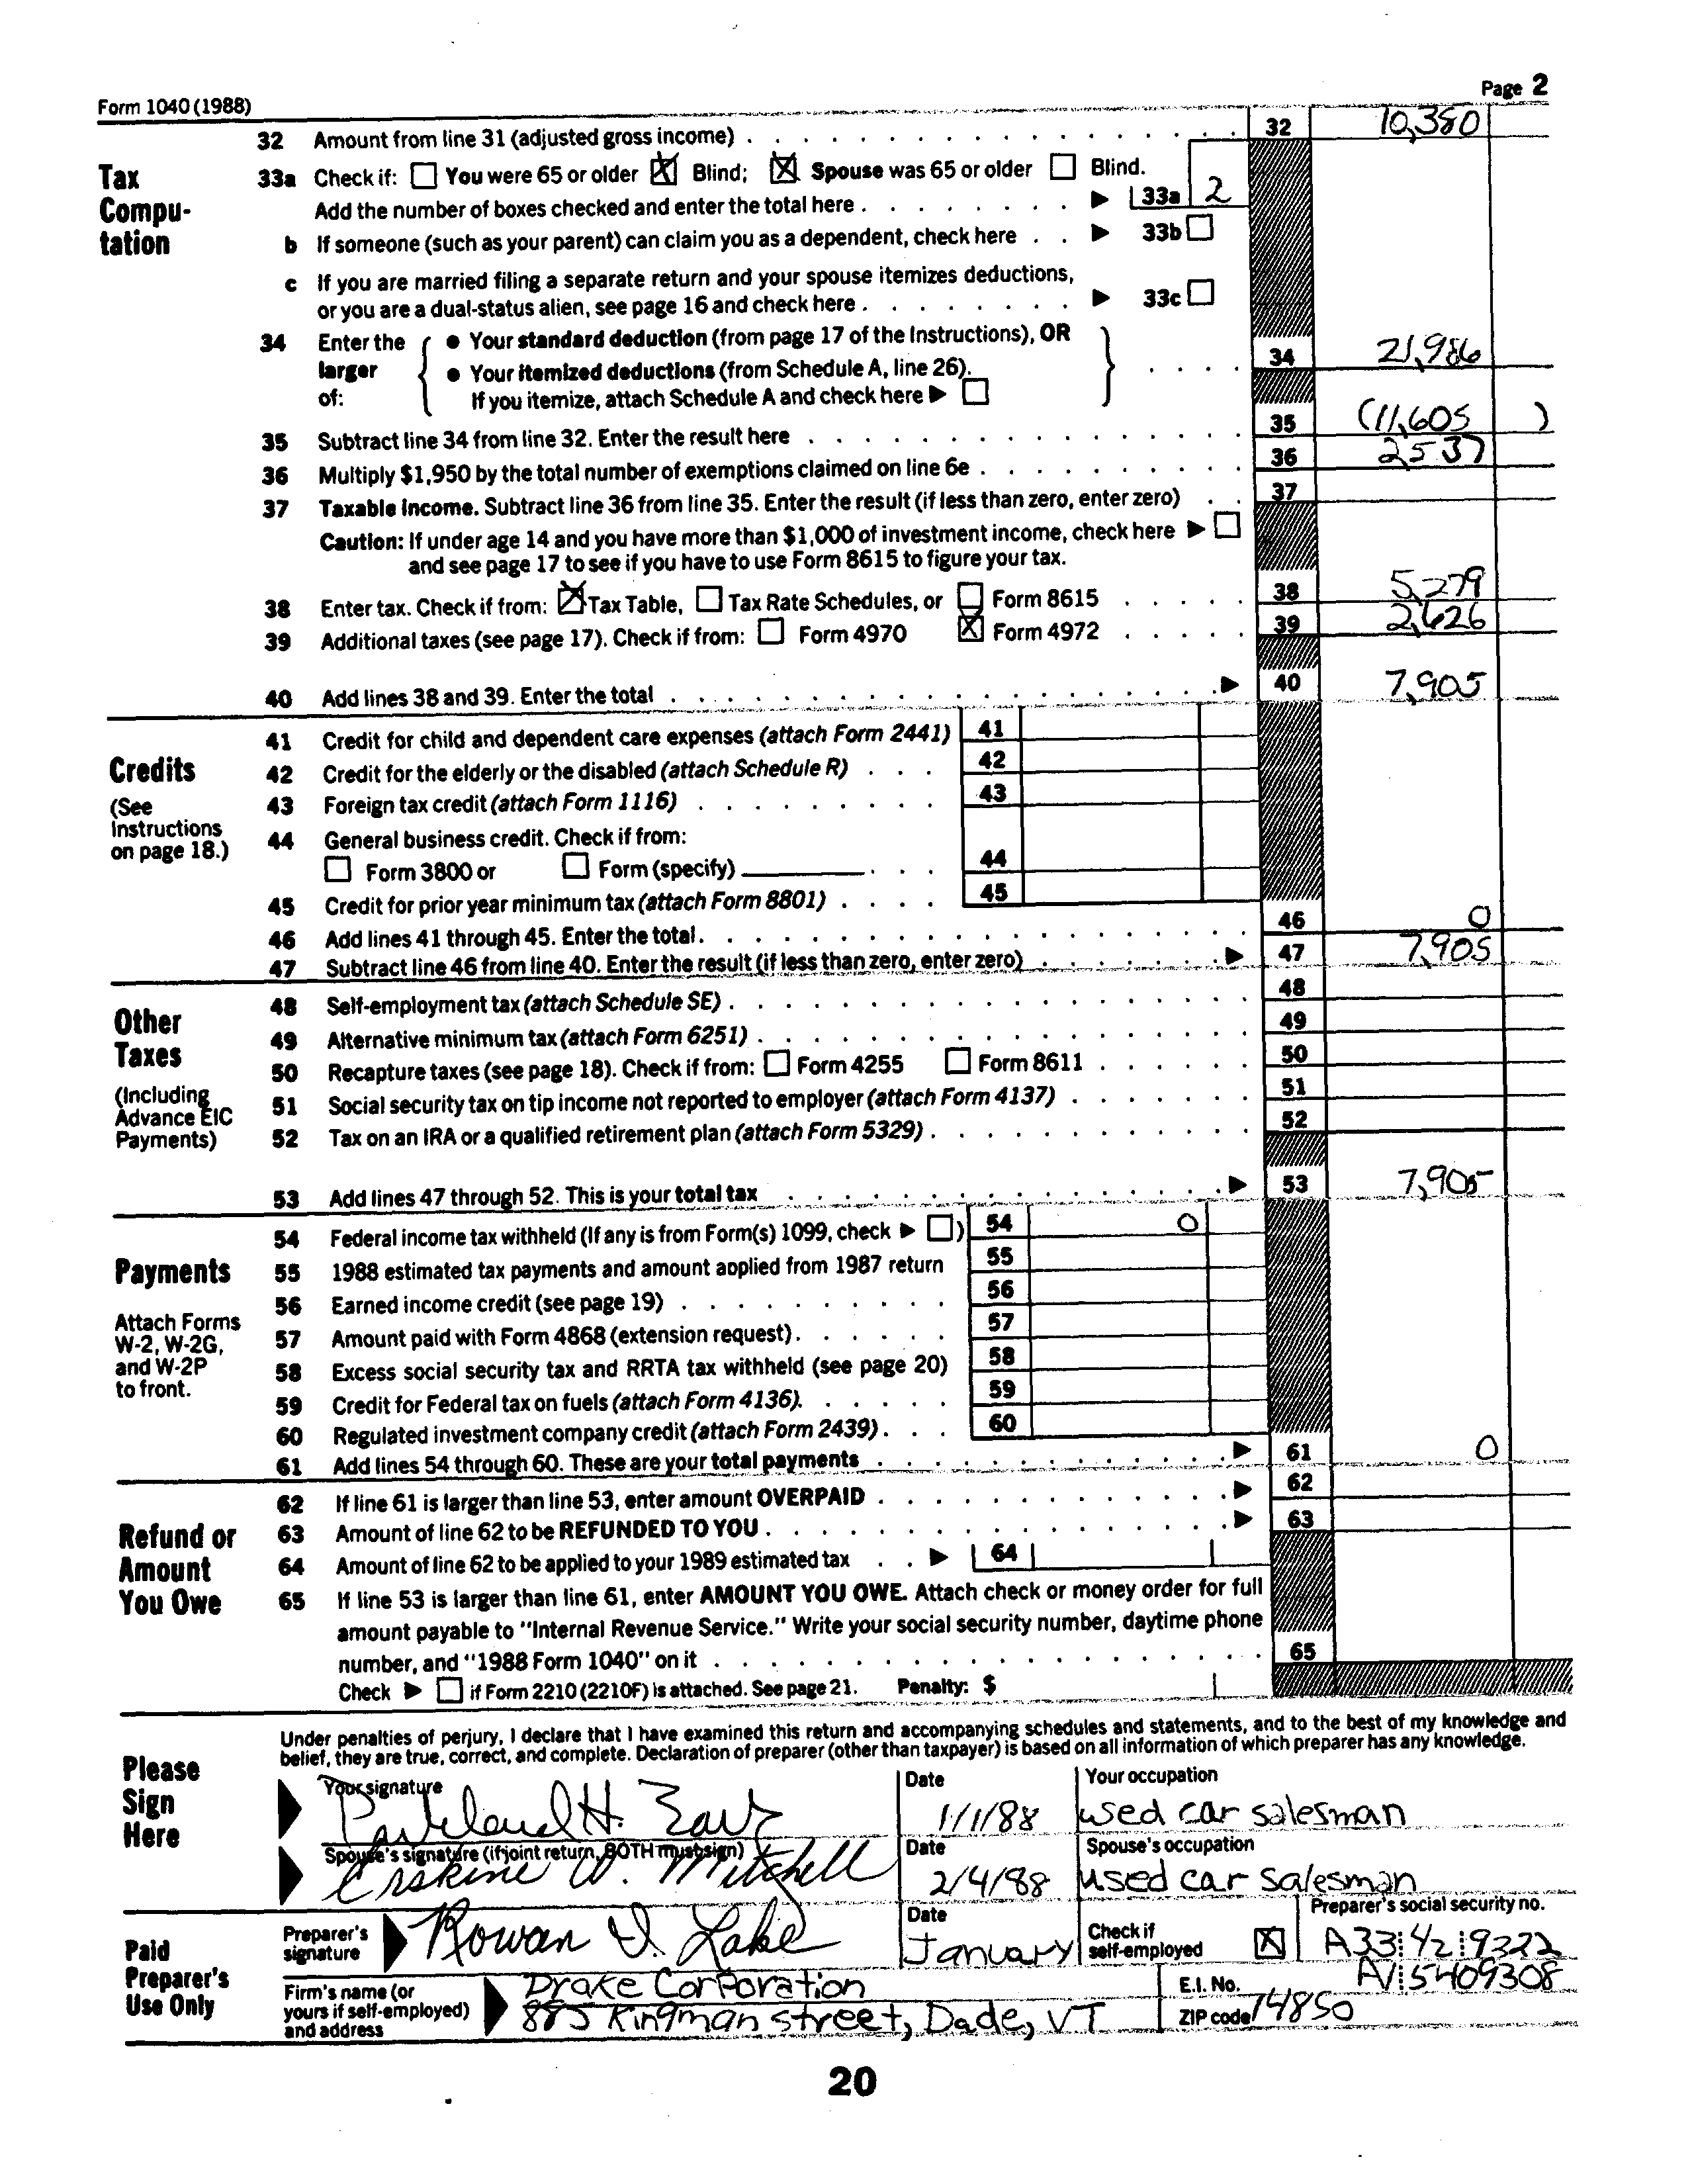 Form 1040 (1988)
Page 2
32 Amount from line 31 (adjusted gross income) 32 10,380
Tax Computation
33a Check if: You were 65 or older X Blind; X Spouse was 65 or older Blind.
Add the number of boxes checked and enter the total here 33a 2
b If someone (such as your parent) can claim you as a dependent, check here 33b
c If you are married filing a separate return and your spouse itemizes deductions,
or you are a dual-status alien, see page 16 and check here 33c
34 Enter the larger of:
• Your standard deduction (from page 17 of the Instructions), OR
• Your itemized deductions (from Schedule A, line 26).
If you itemize, attach Schedule A and check here
34 21,986
35 Subtract line 34 from line 32. Enter the result here 35 (11,605 )
36 Multiply $1,950 by the total number of exemptions claimed on line 6e 36 2537
37 Taxable income. Subtract line 36 from line 35. Enter the result (if less than zero, enter zero) 37
Caution: If under age 14 and you have more than $1,000 of investment income, check here
and see page 17 to see if you have to use Form 8615 to figure your tax.
38 Enter tax. Check if from: X Tax Table, Tax Rate Schedules, or Form 8615 38 5,279
39 Additional taxes (see page 17). Check if from: Form 4970 X Form 4972 39 2,626
40 Add lines 38 and 39. Enter the total 40 7,905
Credits
(See Instructions on page 18.)
41 Credit for child and dependent care expenses (attach Form 2441) 41
42 Credit for the elderly or the disabled (attach Schedule R) 42
43 Foreign tax credit (attach Form 1116) 43
44 General business credit. Check if from:
Form 3800 or Form (specify) 44
45 Credit for prior year minimum tax (attach Form 8801) 45
46 Add lines 41 through 45. Enter the total. 46 0
47 Subtract line 46 from line 40. Enter the result (if less than zero, enter zero) 47 7,905
Other Taxes
(Including Advance EIC Payments)
48 Self-employment tax (attach Schedule SE) 48
49 Alternative minimum tax (attach Form 6251) 49
50 Recapture taxes (see page 18). Check if from: Form 4255 Form 8611 50
51 Social security tax on tip income not reported to employer (attach Form 4137) 51
52 Tax on an IRA or a qualified retirement plan (attach Form 5329) 52
53 Add lines 47 through 52. This is your total tax 53 7,905
Payments
Attach Forms W-2, W-2G, and W-2P to front.
54 Federal income tax withheld (If any is from Form(s) 1099, check ) 54 0
55 1988 estimated tax payments and amount applied from 1987 return 55
56 Earned income credit (see page 19) 56
57 Amount paid with Form 4868 (extension request) 57
58 Excess social security tax and RRTA tax withheld (see page 20) 58
59 Credit for Federal tax on fuels (attach Form 4136) 59
60 Regulated investment company credit (attach Form 2439) 60
61 Add lines 54 through 60. These are your total payments 61 0
Refund or Amount You Owe
62 If line 61 is larger than line 53, enter amount OVERPAID 62
63 Amount of line 62 to be REFUNDED TO YOU 63
64 Amount of line 62 to be applied to your 1989 estimated tax 64
65 If line 53 is larger than line 61, enter AMOUNT YOU OWE. Attach check or money order for full
amount payable to "Internal Revenue Service." Write your social security number, daytime phone
number, and "1988 Form 1040" on it 65
Check if Form 2210 (2210F) is attached. See page 21. Penalty: $
Please Sign Here
Under penalties of perjury, I declare that I have examined this return and accompanying schedules and statements, and to the best of my knowledge and
belief, they are true, correct, and complete. Declaration of preparer (other than taxpayer) is based on all information of which preparer has any knowledge.
Your signature Date Your occupation
H. 1/1/88 used car salesman
Spouse's signature (if joint return, BOTH must sign) Date Spouse's occupation
Erskine W. Mitchell 2/4/88 used car salesman
Paid Preparer's Use Only
Preparer's signature Rowan D. Lake Date January Check if self-employed X Preparer's social security no. A33 42 9322
Firm's name (or yours if self-employed) and address Drake Corporation E.I. No. AV 5409308
885 Kingman street, Dade, VT ZIP code 14850
20